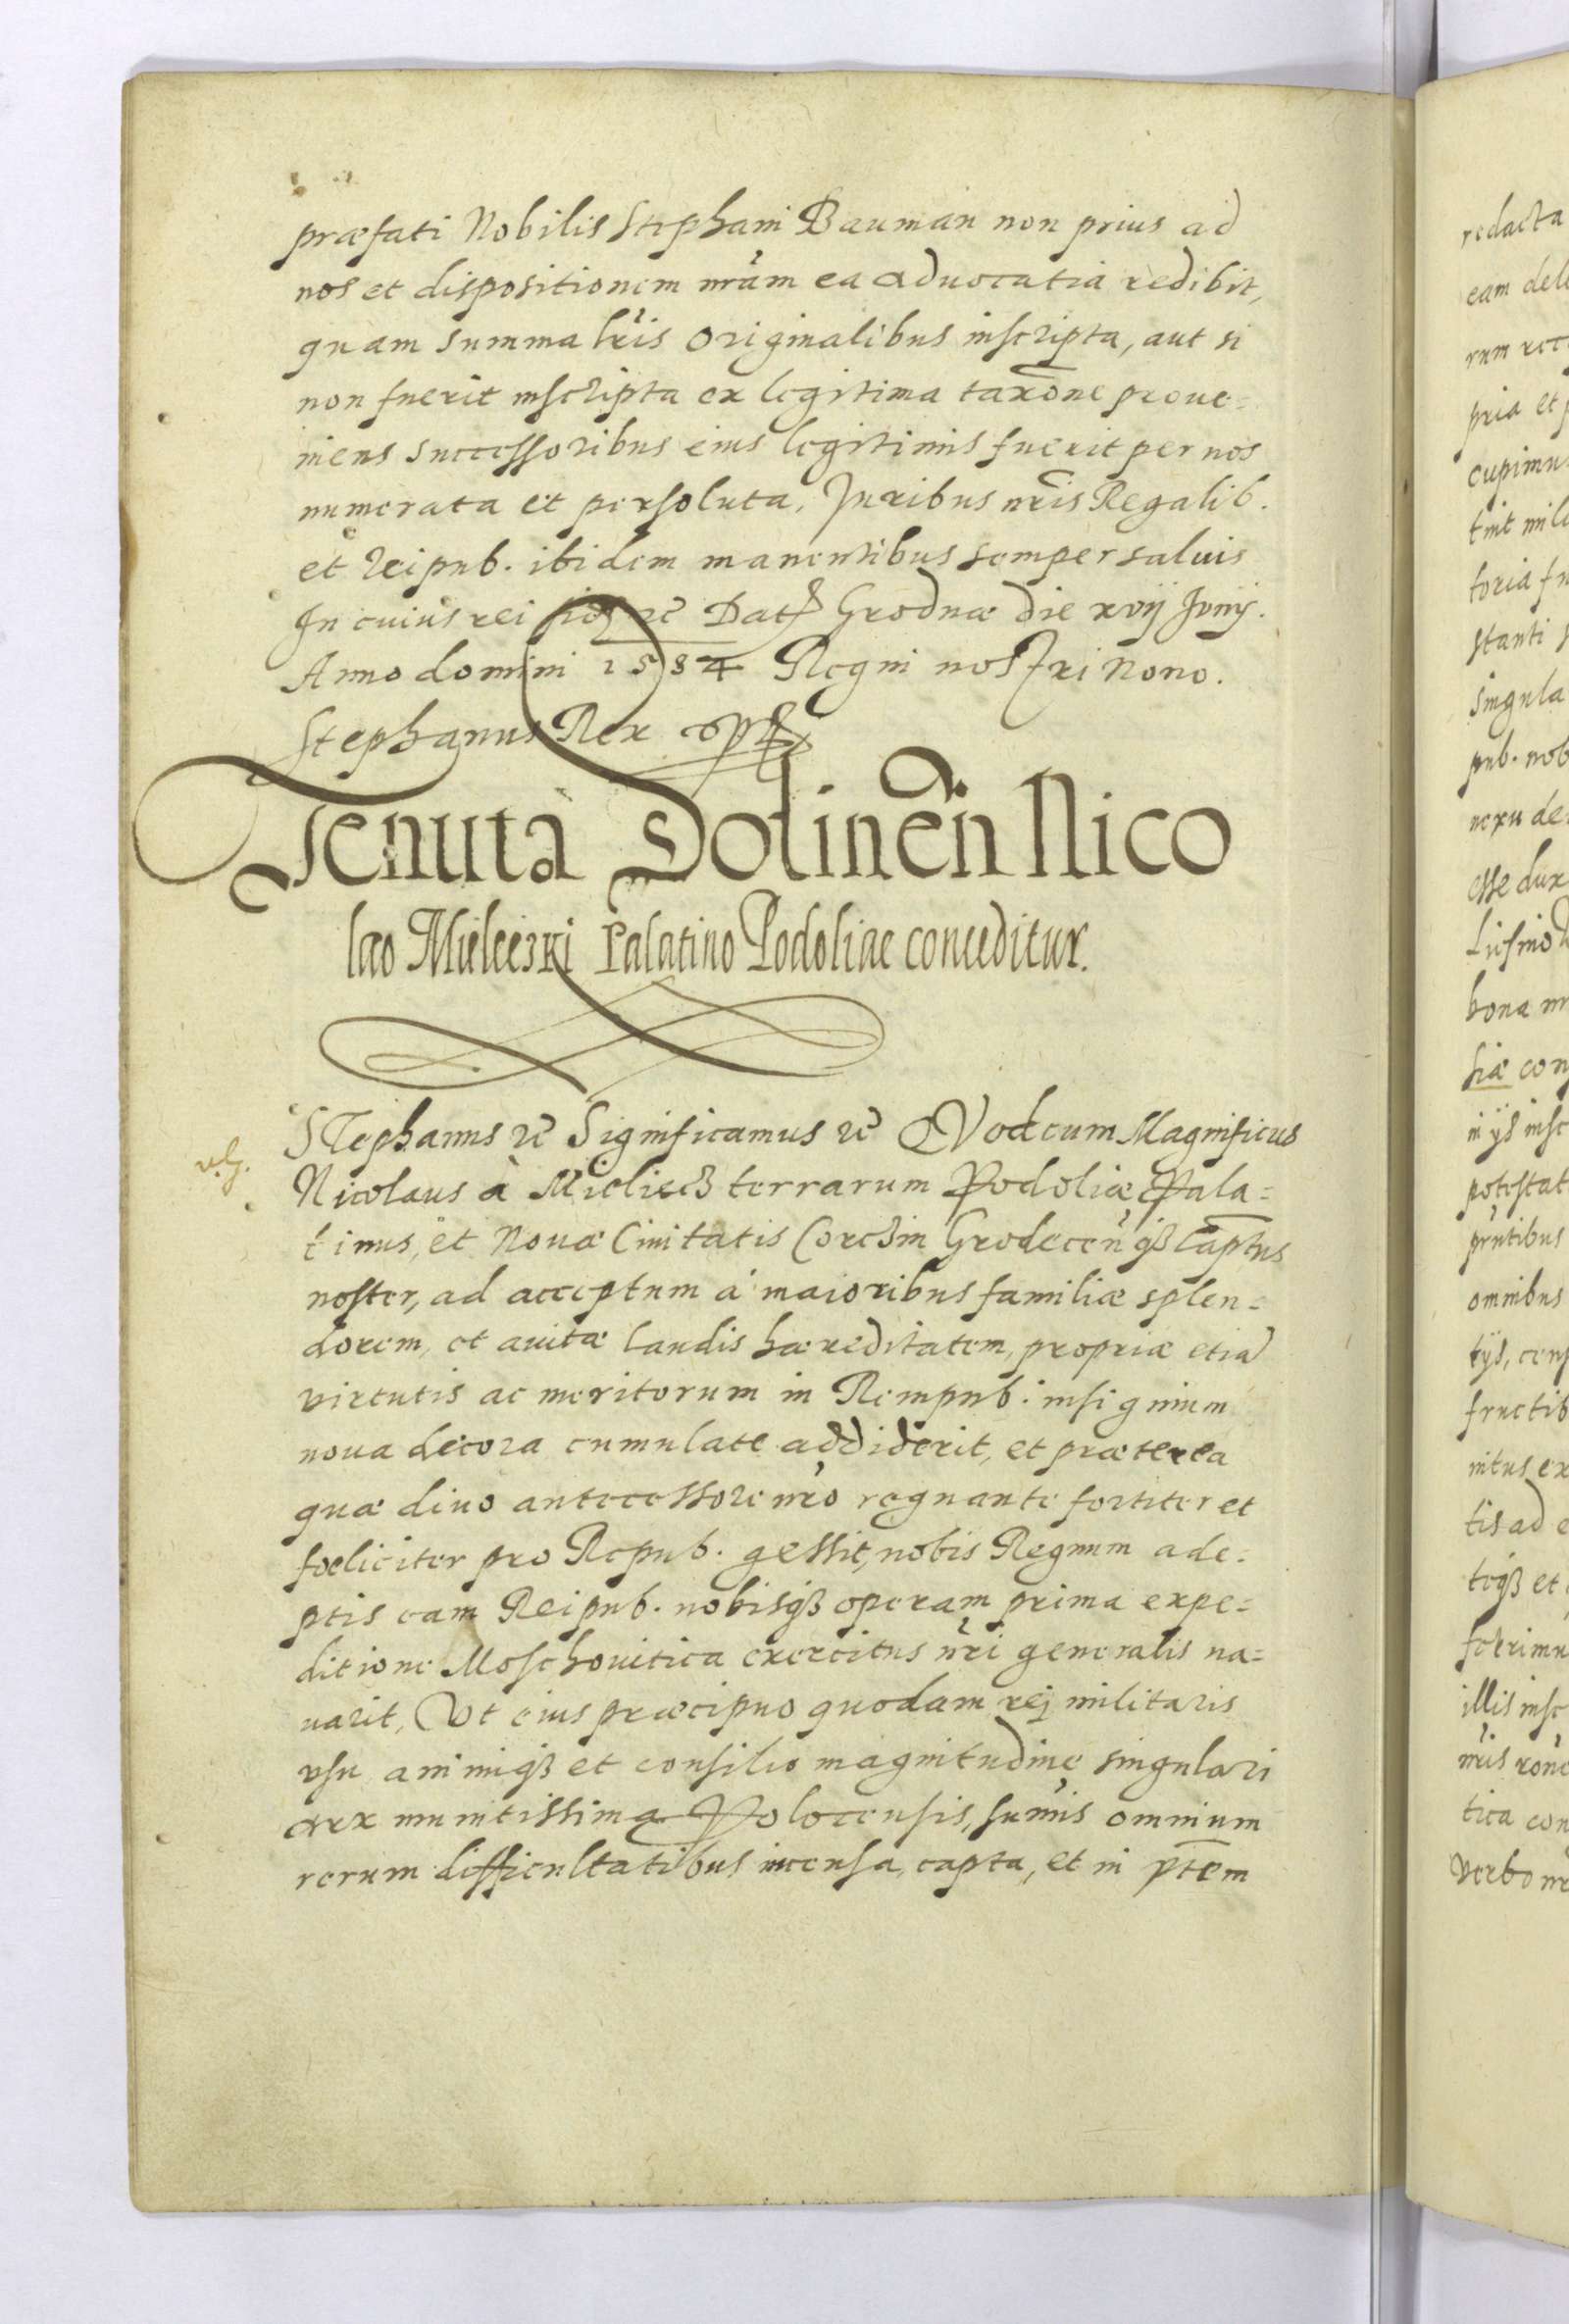 præfati Nobilis Stephani Bauman non prius ad
nos et dispositionem nr̃am ea aduocatia redibit,
quam summa lr̃is originalibus inscripta, aut si
non fuerit inscripta ex legitima taxõne proue=
niens successoribus eius legitimis fuerit per nos
numerata et persoluta. Juribus nr̃is Regalib.
et Reipub. ibidem manentibus semper saluis
In cuius rei Dat Grodnæ die xvij Junij.
Anno domini 1584 Regni nostri Nono.
Stephanus Rex
Tenuta Dolinen̄ Nico
lao Mieleczki Palatino Podoliae conceditur.
STephanus ꝛc̃ Significamus ꝛc̃ QVod cum Magnificus
Nicolaus à Mieliecz terrarum Podoliæ Pala=
tinus, et Nouæ Ciuitatis Corczin Grodecen̄ qꝫ Captn̄us
noster, ad acceptum à maioribus familiæ splen=
dorem, et auitæ laudis hæreditatem, propriæ etiã
virtutis ac meritorum in Rempub. insignium
noua decora cumulate addiderit, et præterea
quæ diuo antecessore nr̃o regnante fortiter et
fœliciter pro Repub. gessit, nobis Regnum ade=
ptis eam Reipub. nobisqꝫ operam prima expe=
ditione Moschouitica exercitus nr̃i generalis na=
uarit, Vt eius præcipuo quodam rej militaris
vsu animiqꝫ et consilio magnitudine singulari
arx munitissima Polocensis, sum̃is omnium
rerum difficultatibus incensa, capta, et in p̃tem